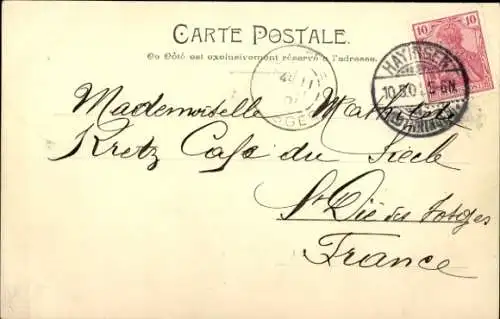 CARTE POSTALE.
Ce Côté est exclusivement réservé à l'adresse.
10 10
HAYINGEN
Mademoiselle
Kretz Café du Siècle
St Dié des Vosges
France